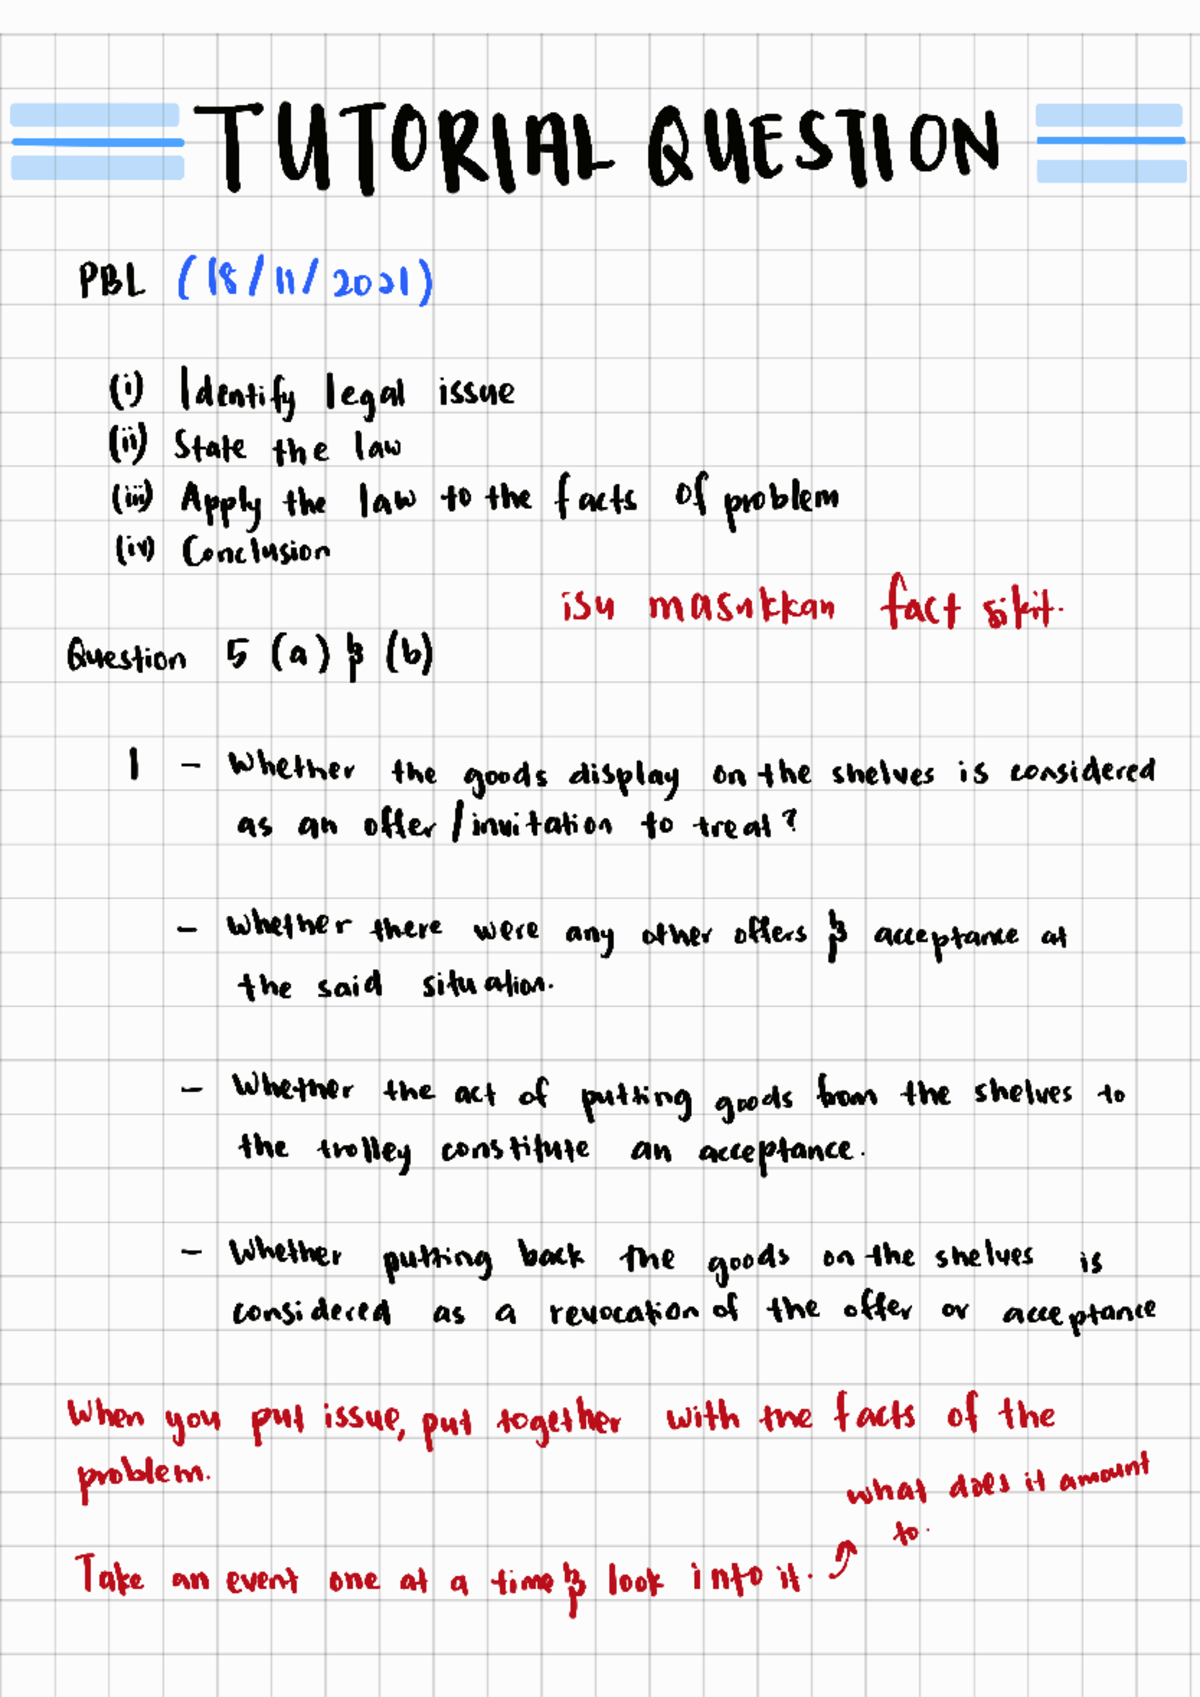 TUTORIAL QUESTION
PBL (18/11/2021)
(i) Identify legal issue
(ii) State the law
(iii) Apply the law to the facts of problem
(iv) Conclusion
isu masukkan fact sikit.
Question 5 (a) & (b)
1 - Whether the goods display on the shelves is considered
as an offer / invitation to treat?
- Whether there were any other offers & acceptance at
the said situation.
- Whether the act of putting goods from the shelves to
the trolley constitute an acceptance.
- Whether putting back the goods on the shelves is
considered as a revocation of the offer or acceptance
When you put issue, put together with the facts of the
problem.
what does it amount
to.
Take an event one at a time & look into it.